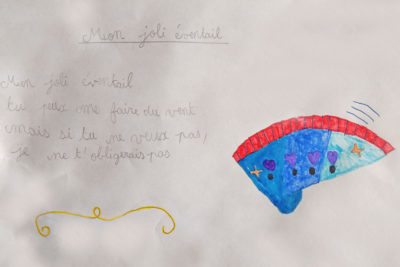 Mon joli éventail
Mon joli éventail
tu peux me faire du vent
mais si tu ne veux pas,
je ne t'obligerais pas